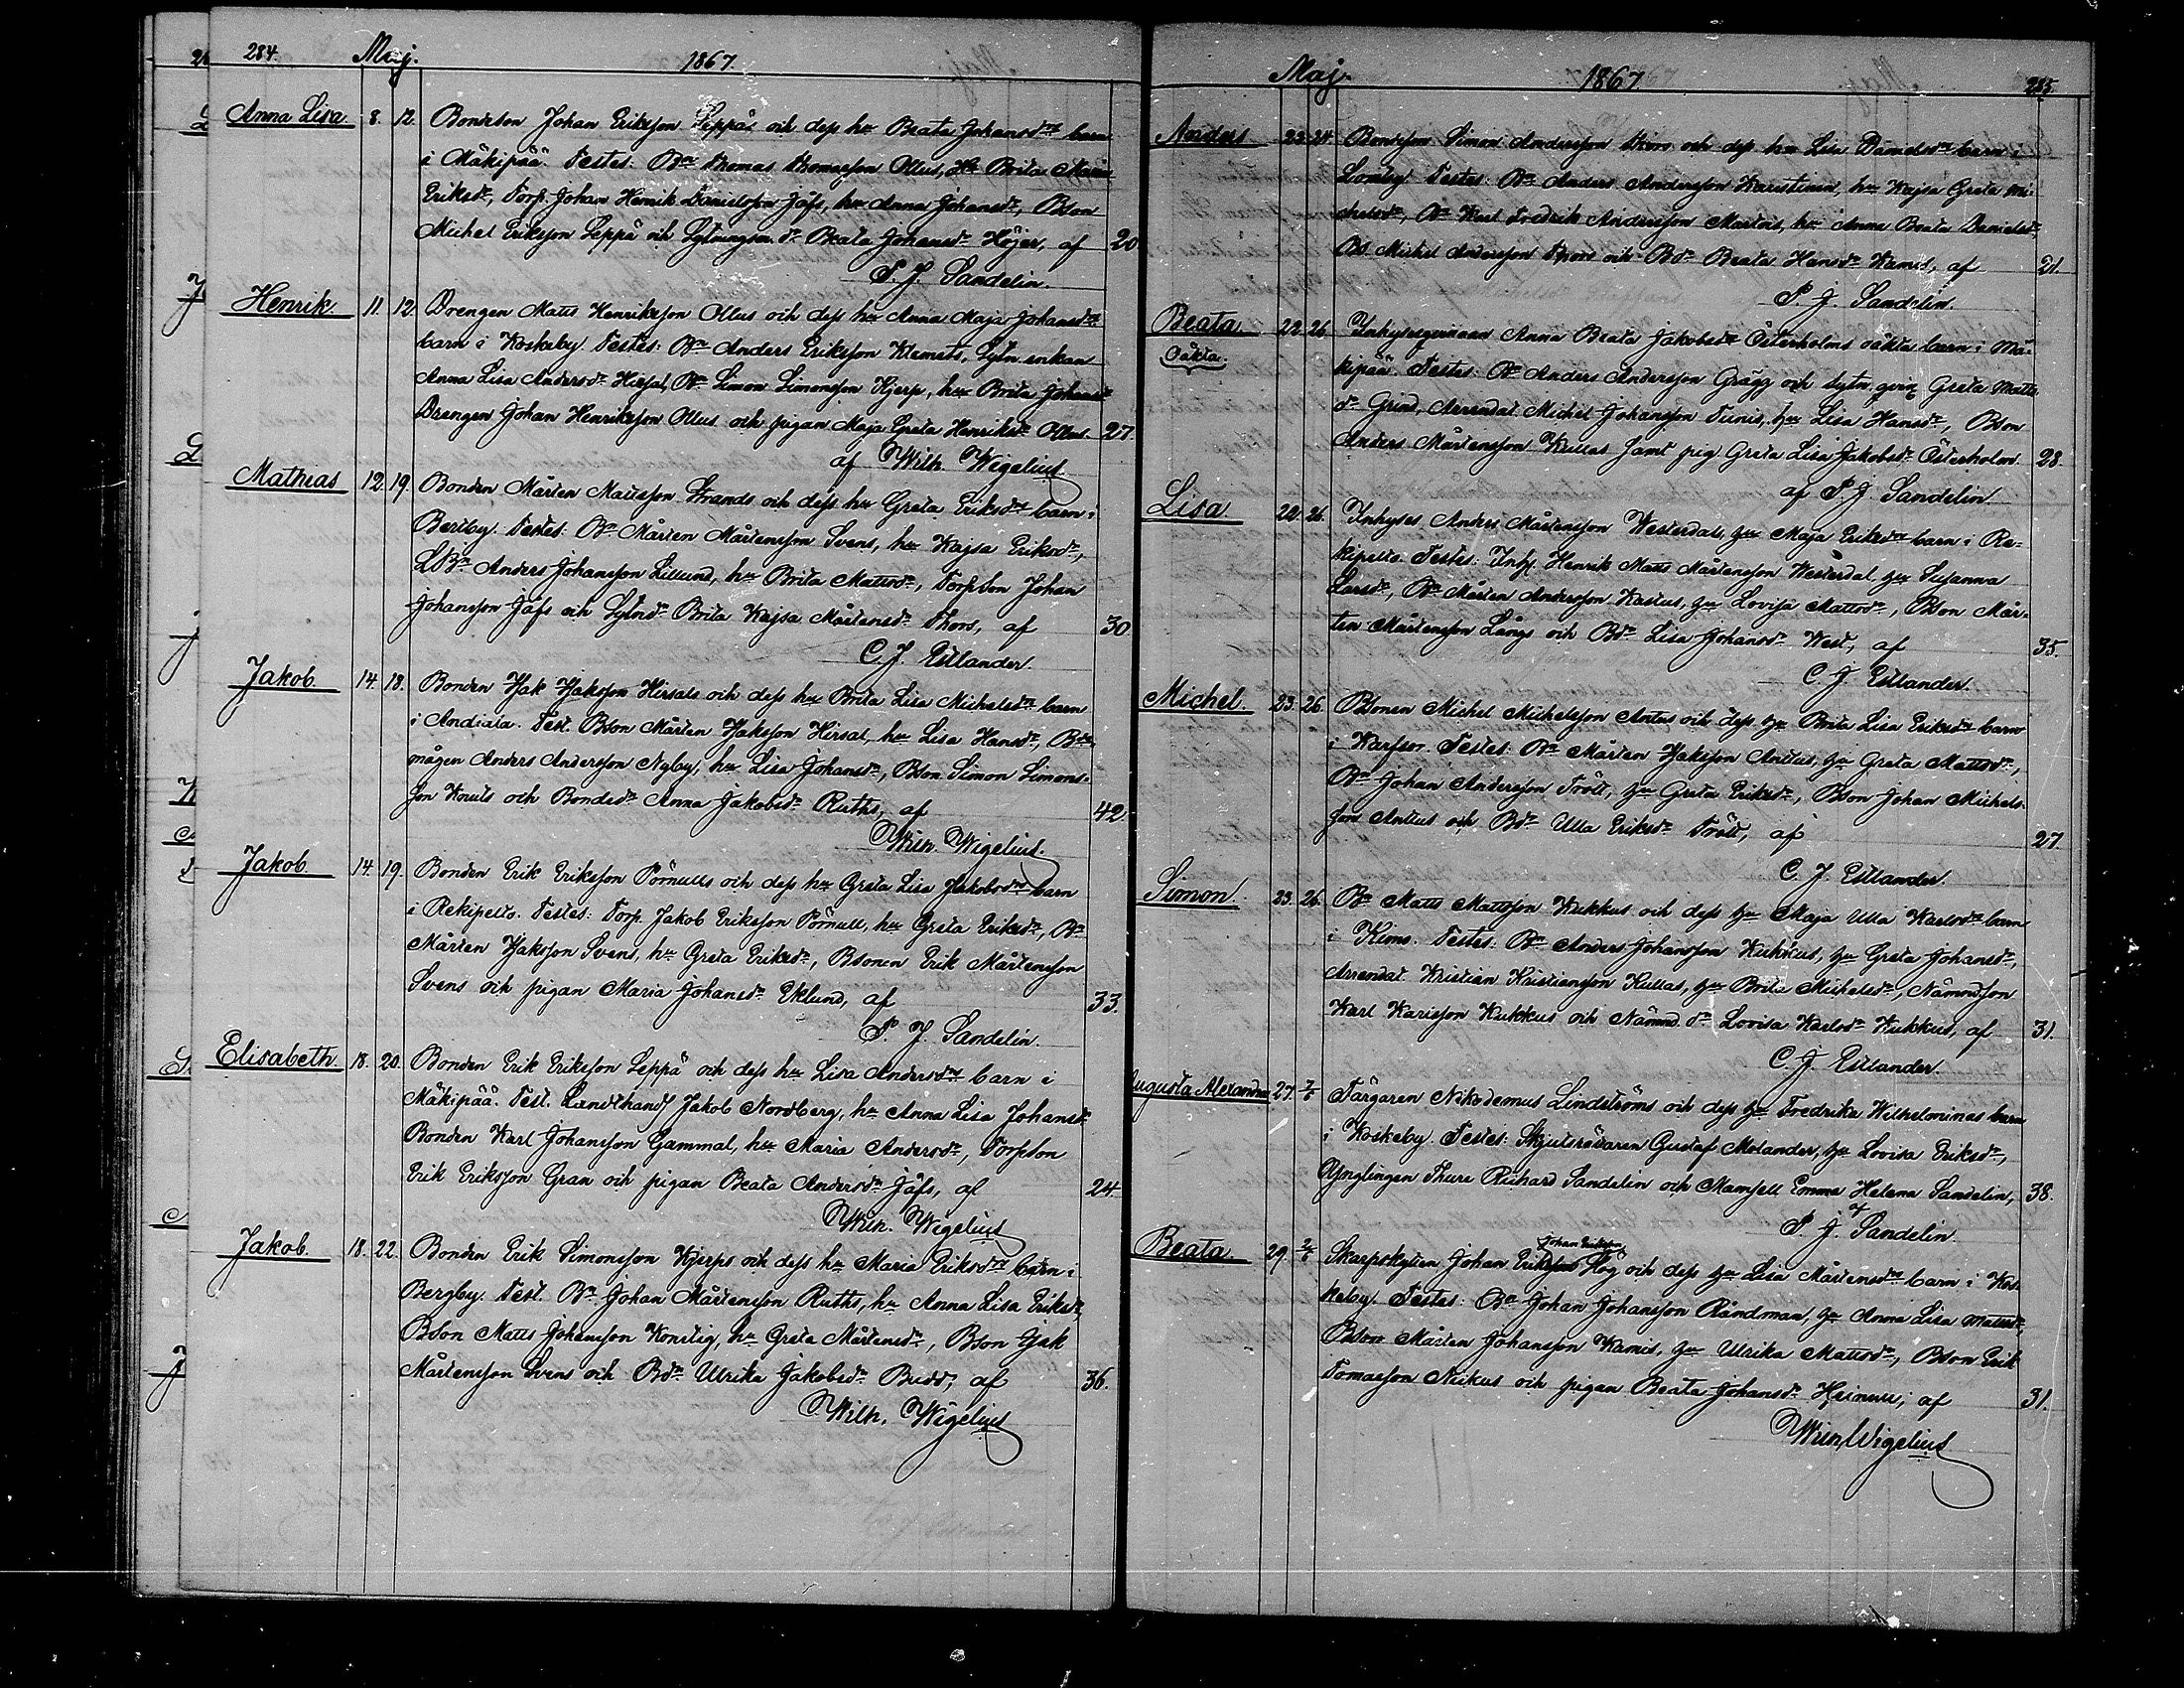 284. Maj. 1867.
Anna Lisa 8. 12. Bondeson Johan Eriksson Leppä och dess hu Beata Johansdrs barn
i Mäkipää. Testes: Bn Thomas Thomasson Ollus, Hu Brita Maria
Eriksdr, Torp. Johan Henrik Danielsson Jåfs, hu Anna Johansdr, Bson
Michel Eriksson Leppä och Sytningsm. dr Beata Johansdr Höjer, af 20
P. J. Sandelin.
Henrik. 11. 12 Drengen Matts Henriksson Ollus och dess hu Anna Maja Johansdrs
barn i Koskeby. Testes: Bn Anders Eriksson Klemets, Sytn. enkan
Anna Lisa Andersdr Hirsal, Bn Simon Simonsson Kjerp, hu Brita Johansdr
Drengen Johan Henriksson Ollus och pigan Maja Greta Henriksdr Ollus. 27.
af Wilh. Wigelius
Mathias 12. 19. Bonden Mårten Mattsson Strands och dess hu Greta Eriksdrs barn i
Bertby. Testes: Bn Mårten Mårtensson Svens, hu Kajsa Eriksdr,
LBn Anders Johansson Lillund, hu Brita Mattsdr, Torpson Johan
Johansson Jåfs och Sytndr Brita Kajsa Mårtensdr Thors, af 30
C. J. Estlander.
Jakob. 14. 18. Bonden Isak Isaksson Hirsals och dess hu Brita Lisa Michelsdrs barn
i Andiala. Test. Bson Mårten Isaksson Hirsal, hu Lisa Hansdr, Bde
mågen Anders Andersson Nyby, hu Lisa Johansdr, Bson Simon Simons-
son Knuts och Bondedr Anna Jakobsdr Ruths, af 42
Wilh. Wigelius.
Jakob. 14. 19. Bonden Erik Eriksson Pörnulls och dess hu Greta Lisa Jakobsdrs barn
i Rekipelto. Testes: Torp. Jakob Eriksson Pörnull, hu Greta Eriksdr, Bn
Mårten Isaksson Svens, hu Greta Eriksdr, Bsonen Erik Mårtensson
Svens och pigan Maria Johansdr Eklund, af 33.
P. J. Sandelin.
Elisabeth 18. 20. Bonden Erik Eriksson Leppä och dess hu Lisa Andersdrs barn i
Mäkipää. Test. Landthandl Jakob Nordberg, hu Anna Lisa Johansdr
Bonden Karl Johansson Gammal, hu Maria Andersdr, Torpson
Erik Eriksson Gran och pigan Beata Andersdr Jåfs, af 24
Wilh. Wigelius
Jakob. 18. 22. Bonden Erik Simonsson Kjerps och dess hu Maria Eriksdrs barn i
Bergby. Test. Bn Johan Mårtensson Ruths, hu Anna Lisa Eriksdr,
Bson Matts Johansson Konstig, hu Greta Mårtensdr, Bson Isak
Mårtensson Svens och Bdr Ulrika Jakobsdr Budd, af 36.
Wilh. Wigelius
Maj. 1867 285.
Anders 23 24 Bondeson Simon Andersson Thors och dess hu Lisa Danielsdrs barn i
Lomby Testes: Bn Anders Andersson Karstinen, hu Kajsa Greta Mi-
chelsdr, Bn Karl Fredrik Andersson Martois, hu Anna Beata Danielsdr,
Bs Michel Andersson Thors och Bdr Beata Hansdr Kamis, af 21.
P. J. Sandelin.
Beata 22. 26 Inhysesqvinnan Anna Beata Jakobsdr Österholms oäkta barn i Mä-
Oäkta.
kipää. Testes: Bn Anders Andersson Grägg och Sytn. qvin Greta Matts
dr Grind, Arrendat. Michel Johansson Tunis, hu Lisa Hansdr, Bson
Anders Mårtensson Kullas samt pig. Greta Lisa Jakobsdr Österholm. 28.
af P. J. Sandelin
Lisa 22. 26. Inhyses Anders Mårtensson Westerdals, hu Maja Eriksdrs barn i Re-
kipelto. Testes: Inhy. Henrik Matts Mårtensson Westerdal hu Susanna
Larsdr, Bn Mårten Andersson Kastus, hu Lovisa Mattsdr, Bson Mår-
ten Mårtensson Långs och Bdr Lisa Johansdr West, af 35.
C. J. Estlander.
Michel. 23. 26 Bsonen Michel Michelsson Antus och dess hu Brita Lisa Eriksdrs barn
i Karfsor. Testes: Bn Mårten Isaksson Antus, hu Greta Mattsdr,
Bn Johan Andersson Tröit, hu Greta Eriksdr, Bson Johan Michels-
son Antus och Bdr Ulla Eriksdr Tröit, af 27.
C. J. Estlander.
Simon. 23. 26. Bn Matts Mattsson Kukkus och dess hu Maja Ulla Karlsdrs barn
i Kimo. Testes. Bn Anders Johansson Kukkus, hu Greta Johansdr,
Arrendat. Kristian Kristiansson Kullas, hu Brita Michelsdr, Nämndson
Karl Karlsson Kukkus och Nämnd. dr Lovisa Karlsdr Kukkus, af 31.
C. J. Estlander.
Augusta Alexandra 27. 2/6 Färgaren Nikodemus Lindströms och dess hu Fredrika Wilhelminas barn
i Koskeby. Testes: Skjutsrättaren Gustaf Molander, hu Lovisa Eriksdr,
Ynglingen Thure Richard Sandelin och Mamsell Emma Helena Sandelin, 38.
af
P. J. Sandelin
Beata. 29. 2/6 Skarpskytten Johan Eriksson Hög och dess hu Lisa Mårtensdrs barn i Kos-
Johan Eriksson
keby. Testes: Bn Johan Johansson Råndman, hu Anna Lisa Mattsdr,
Bson Mårten Johansson Kamis, hu Ulrika Mattsdr, Bson Erik
Tomasson Niikus och pigan Beata Johansdr af 31.
Wilh. Wigelius